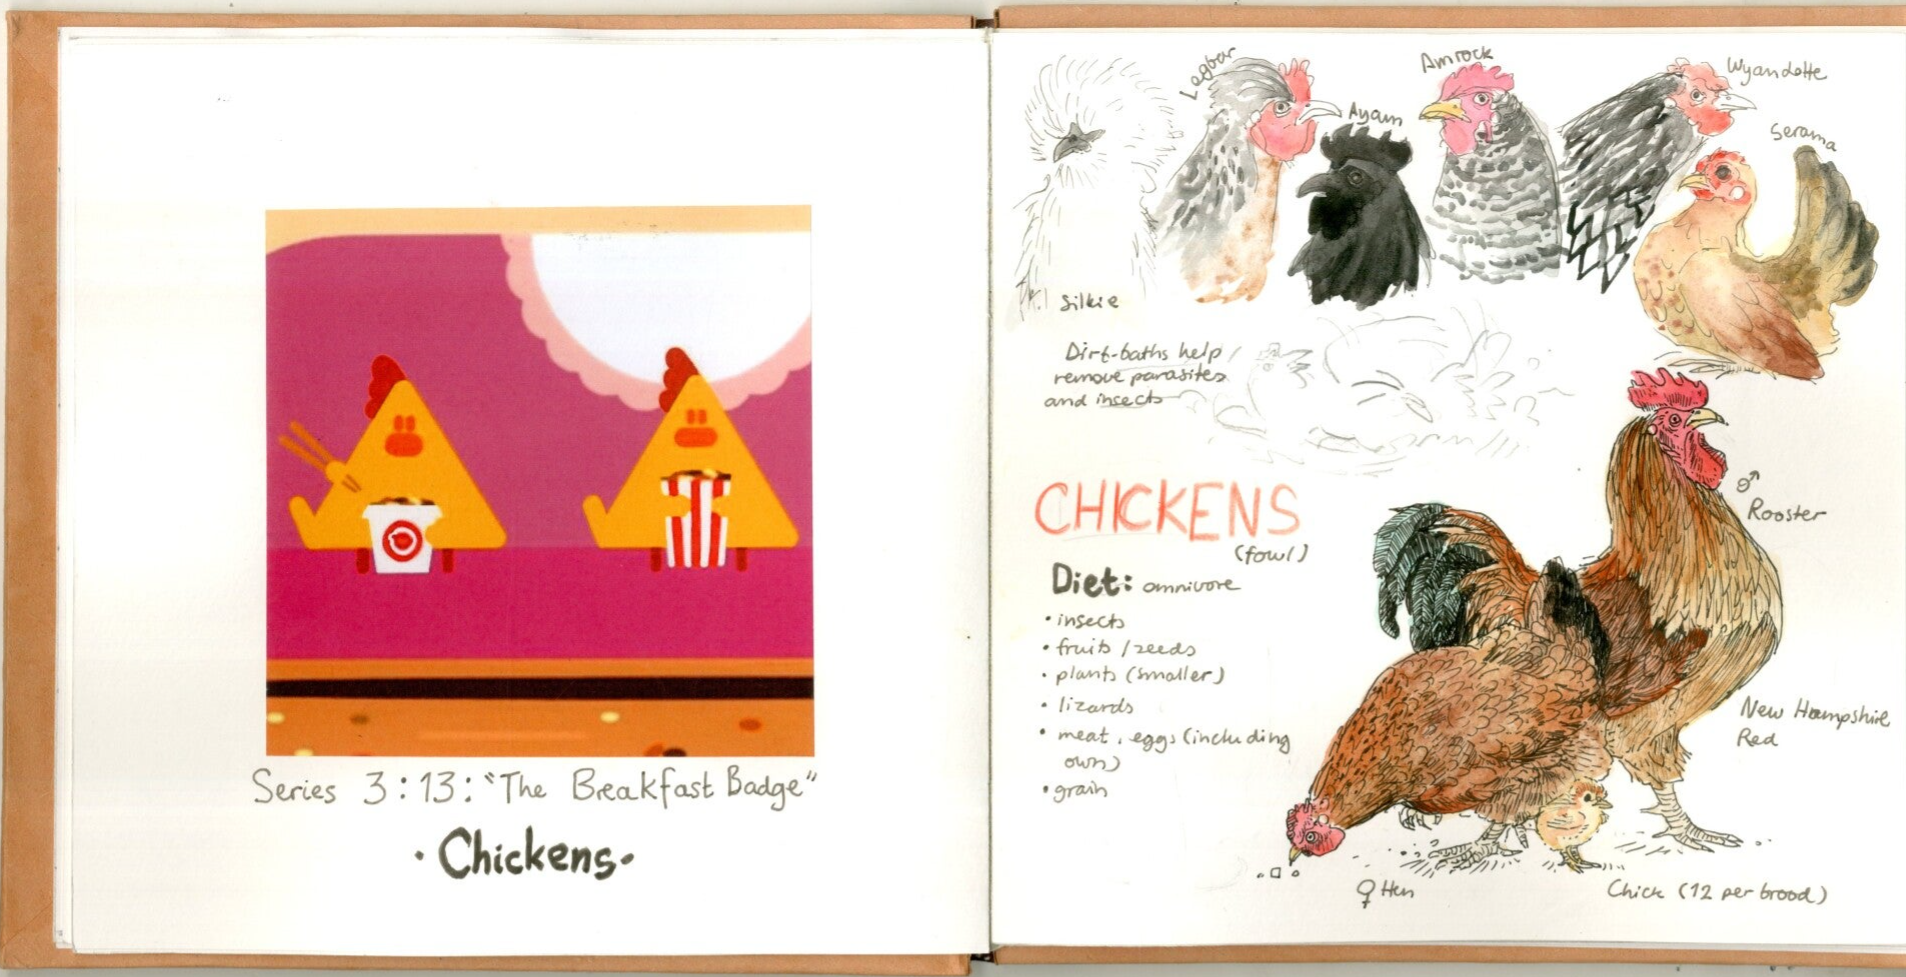 Series 3:13: "The Breakfast Badge"
· Chickens ·
Legbar
Amrock
Wyandotte
Ayam
Serama
Silkie
Dirt-baths help
remove parasites
and insects
CHICKENS
(fowl)
Diet: omnivore
• insects
• fruits / seeds
• plants (smaller)
• lizards
• meat, eggs (including
own)
• grain
♂
Rooster
New Hampshire
Red
♀ Hen
Chick (12 per brood)